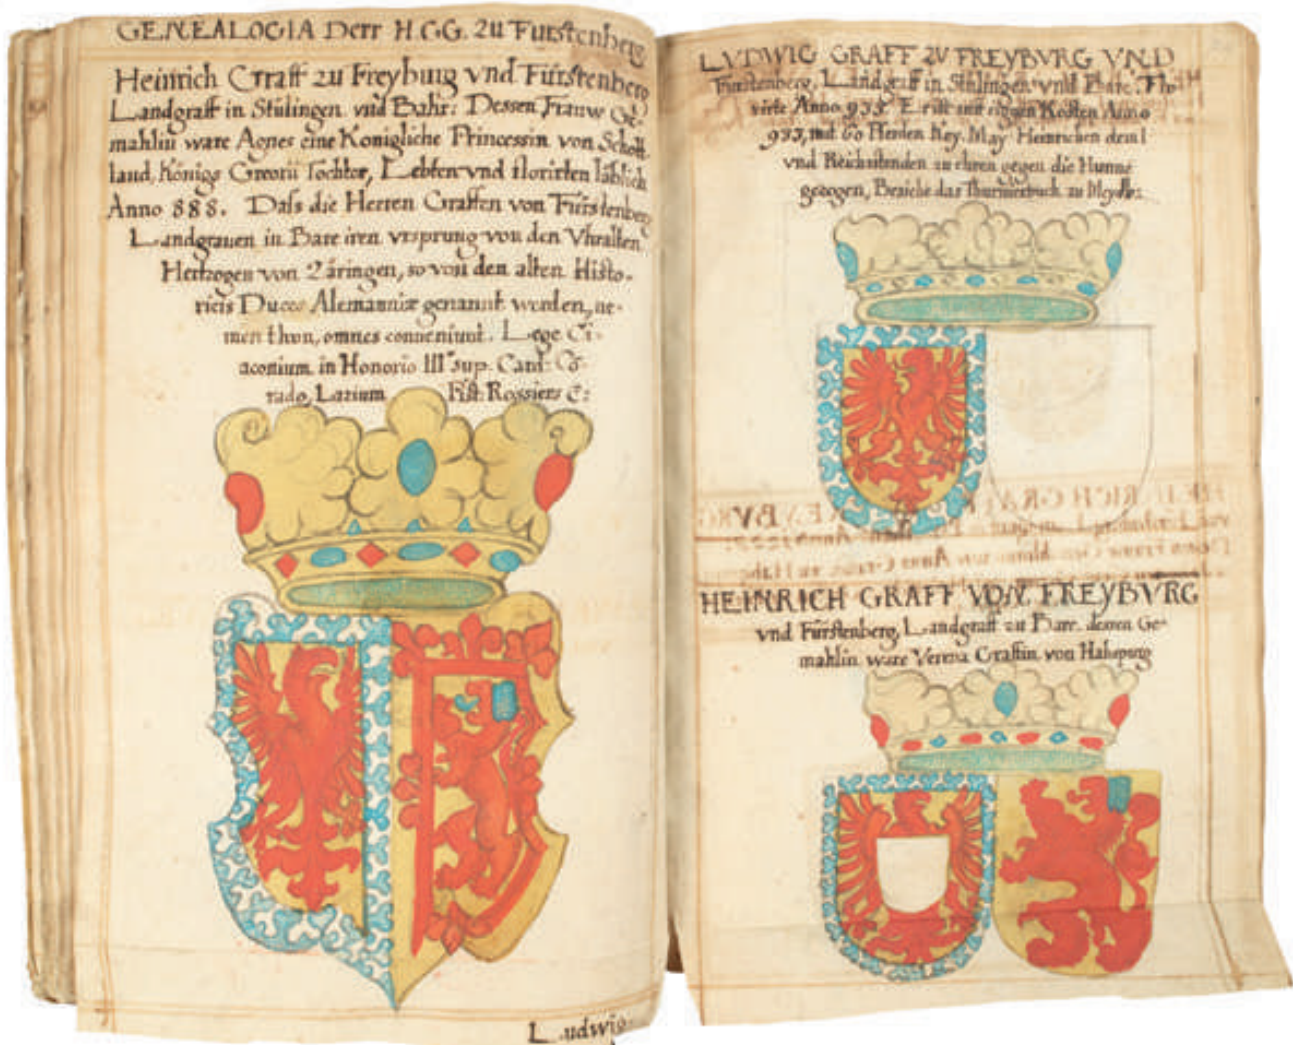 GENEALOGIA Derr H.GG. zu Furstenberg
Heinrich Graff zu Freyburg vnd Fürstenberg
Landgraff in Stülingen vnd Bahr: Dessen Frauw Ge-
mahlin ware Agnes eine Konigliche Princessin von Schott-
land, Königs Tochter, Lebten vnd florirten löblich
Anno 888. Dass die Herren Graffen von Fürstenberg
Landgrauen in Bare iren vrsprung von den Vhralten
Hertzogen von Zäringen, so von den alten Histo-
ricis Duces Alemanniæ genannt werden, ne-
men thun, omnes conueniunt. Lege Ci-
aconium in Honorio III sup. Card. Co-
rado, Lazium Hist. Rossiers &:
Ludwig
LVDWIG GRAFF ZV FREYBVRG VND
Fürstenberg, Landgraff in Stülingen vnd Bare. Flo-
rirte Anno 933. Er ist mit eignen Kosten Anno
933, mit 60 Pferden Key. May. Heinrichen dem I
vnd Reichsstenden zu ehren gegen die Hunne
gezogen, Besiehe das Thurnierbuch zu
HEINRICH GRAFF VON FREYBVRG
vnd Fürstenberg, Landgraff zu Bare. dessen Ge-
mahlin ware Verena Graffin von Habspurg